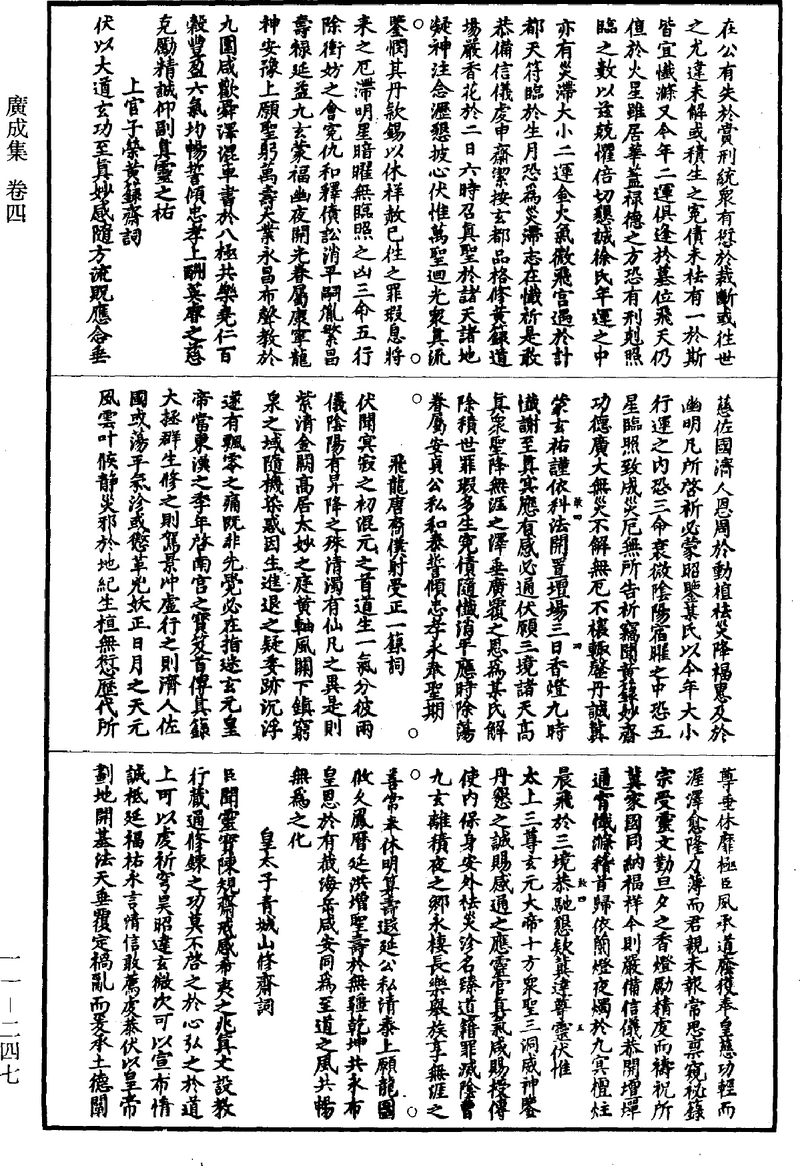 廣成集　卷四
在公有失於賞刑統眾有愆於裁斷或往世
之尤違未解或積生之冤債未祛有一於斯
皆宜懺滌又今年二運俱逢於墓位飛天仍
值於火星雖居華蓋祿德之方恐有刑剋照
臨之數以茲兢懼倍切懇誠徐氏年運之中
亦有災滯大小二運金火氣微飛宮遇於計
都天符臨於生月恐為災滯志在懺祈是敢
恭備信儀虔申齋潔按玄都品格修黃籙道
場嚴香花於二日六時召真聖於諸天諸地
凝神注念瀝懇披心伏惟萬聖迴光眾真流
鑒憫其丹欵錫以休祥赦已往之罪瑕息將
來之厄滯明星暗曜無臨照之凶三命五行
除衝妨之會冤仇和釋債訟消平嗣胤繁昌
壽祿延益九玄蒙福幽夜開光眷屬康寧龍
神安豫上願聖躬萬壽天業永昌布聲教於
九圍咸歡舜澤混車書於八極共樂堯仁百
穀豐盈六氣均暢誓傾忠孝上酬莫春之慈
克勵精誠仰副真靈之祐
上官子榮黃籙齋詞
伏以大道玄功至真妙感隨方流貺應念垂
慈佐國濟人恩周於動植祛災降福惠及於
幽明凡所啓祈必蒙昭鑒某氏以今年大小
行運之內恐三命衰微陰陽宿曜之中恐五
星臨照致成災厄無所告祈竊聞黃籙妙齋
功德廣大無災不解無厄不禳輒罄丹誠冀
蒙玄祐謹依科法開置壇場三日香燈九時
懺謝至真冥應有感必通伏願三境諸天高
真眾聖降無涯之澤垂廣覆之恩為某氏解
除積世罪瑕多生冤債隨懺消平應時除蕩
眷屬安貞公私和泰誓傾忠孝永奉聖期
飛龍唐裔僕射受正一籙詞
伏聞冥寂之初混元之首道生一氣分彼兩
儀陰陽有昇降之殊清濁有仙凡之異是則
紫清金闕高居太妙之庭黃軸風關下鎮窮
泉之域隨機染惑因生進退之疑委跡沉浮
遂有飄零之痛既非先覺必在指迷玄元皇
帝當東漢之季年啓南宮之寶笈首傳真籙
大拯群生修之則駕景沖虛行之則濟人佐
國或蕩平氣沴或懲革兇妖正日月之天元
風雲叶候靜災邪於地紀生植無愆歷代所
尊垂休靡極臣夙承道廕獲奉皇慈功輕而
渥澤愈隆力薄而君親未報常思稟窺祕籙
宗受靈文勤旦夕之香燈勵精虔而禱祝所
冀家國同納福祥今則嚴備信儀恭開壇墠
通宵懺滌稽首歸依蘭燈夜燭於九冥檀炷
晨飛於三境恭馳懇欵冀達尊靈伏惟
太上三尊玄元大帝十方眾聖三洞威神鑒
丹懇之誠賜感通之應靈官真氣咸賜授傳
使內保身安外祛災沴名臻道籍罪滅陰曹
九玄離積夜之鄉永棲長樂舉族享無涯之
善常奉休明算壽遐延公私清泰上願龍圖
攸久鳳曆延洪增聖壽於無疆乾坤共永布
皇恩於有截海岳咸安同為至道之風共暢
無為之化
皇太子青城山修齋詞
臣聞靈寶陳規齋戒感希夷之兆真文設教
行藏通修鍊之功莫不啓之於心弘之於道
上可以虔祈穹昊昭達玄微次可以宣布情
誠祗延福祐永言精信敢薦虔恭伏以皇帝
劃地開基法天垂覆定禍亂而爰承土德闡
一一—二四七